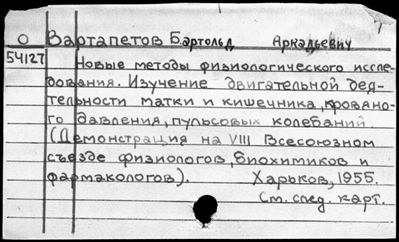 О Вартапетов Бартольд Аркадьевич
54127 Новые методы физиологического иссле-
дования. Изучение двигательной дея-
тельности матки и кишечника, кровяно-
го давления, пульсовых колебаний
(Демонстрация на VIII Всесоюзном
съезде физиологов, биохимиков и
фармакологов). Харьков, 1955.
См. след. карт.